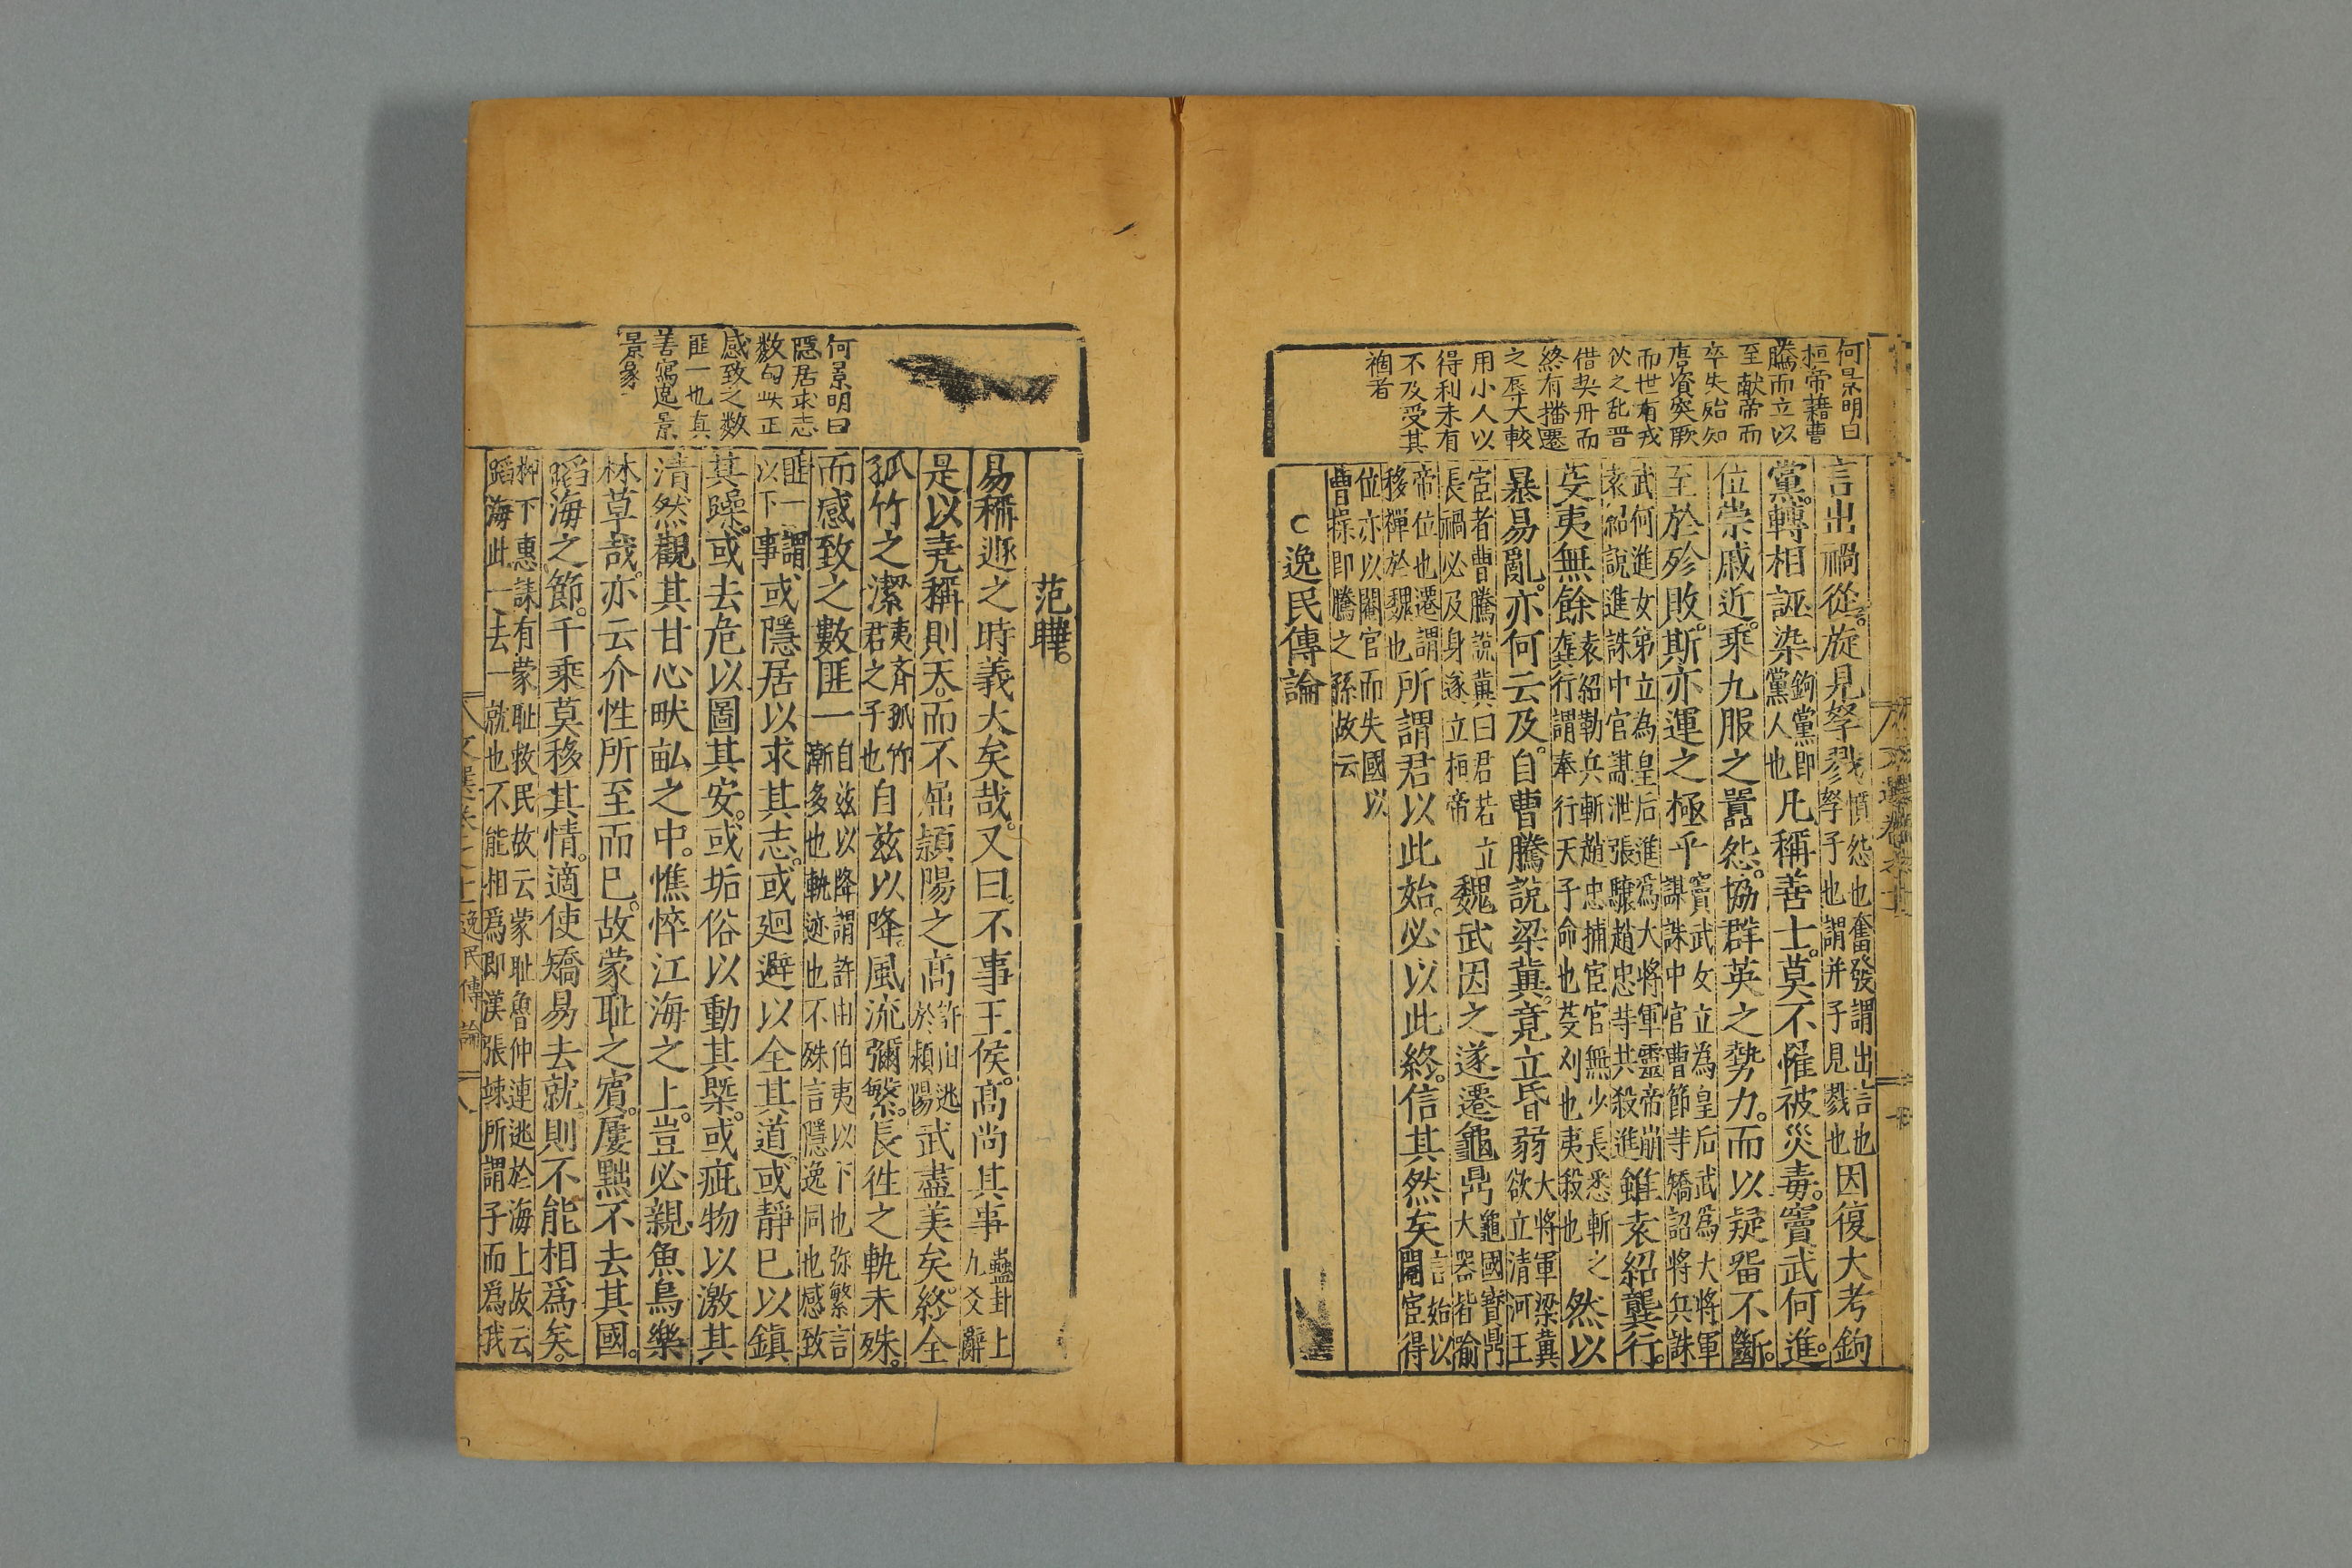 何景明曰
桓帝藉曹
騰而立以
至献帝而
卒失殆如
唐資突厥
而世有戎
狄之乱晋
借契丹而
終有播遷
之辱大較
用小人以
得利未有
不及受其
禍者
言出禍從。旋見孥戮憤怨也奮發謂出言也孥子也謂并子見戮也因復大考鉤
黨。轉相誣染鉤黨即黨人也凡稱善士。莫不罹被災毒。竇武何進。
位崇戚近。乘九服之囂怨。協群英之勢力。而以疑留不斷。
至於殄敗。斯亦運之極乎竇武女立為皇后武為大將軍謀誅中官曹節等矯詔將兵誅
武何進女弟立為皇后進為大將軍靈帝崩袁紹說進誅中官謀泄張驤趙忠等共殺進雖袁紹龔行。
芟夷無餘袁紹勒兵斬趙忠捕宦官無少長悉斬之龔行謂奉行天子命也芟刈也夷殺也然以
暴易亂。亦何云及。自曹騰說梁冀。竟立昏弱大將軍梁冀欲立清河王
宦者曹騰說冀曰君若立長禍必及身遂立桓帝魏武因之遂遷龜鼎龜國寶鼎大器皆喻
帝位也遷謂移禪於魏也所謂君以此始。必以此終。信其然矣言始以閹宦得
位亦以閹官而失國以曹操即騰之孫故云
逸民傳論
文選卷
何景明曰
隱居求志
数句此正
感致之数
匪一也真
善寫逸景
景象
范曄。
易稱遯之時義大矣哉。又曰。不事王侯。高尚其事蠱卦上九爻辭
是以堯稱則天。而不屈潁陽之高許由逃於潁陽武盡美矣。終全
孤竹之潔夷齊孤竹君之子也自兹以降。風流彌繁。長徃之軌未殊。
而感致之數匪一自兹以降謂許由伯夷以下也弥繁言漸多也軌迹也不殊言隱逸同也感致
匪一謂以下事或隱居以求其志。或廻避以全其道。或靜已以鎮
其躁。或去危以圖其安。或垢俗以動其槩。或疵物以激其
清然觀其甘心畎畝之中。憔悴江海之上。豈必親魚鳥樂
林草哉。亦云介性所至而已。故蒙耻之賓。屢黜不去其國。
蹈海之節。千乘莫移其情。適使矯易去就。則不能相爲矣。
柳下惠誄有蒙耻救民故云蒙耻魯仲連逃於海上故云蹈海此一去一就也不能相爲即漢張竦所謂子而爲我
逸民傳論